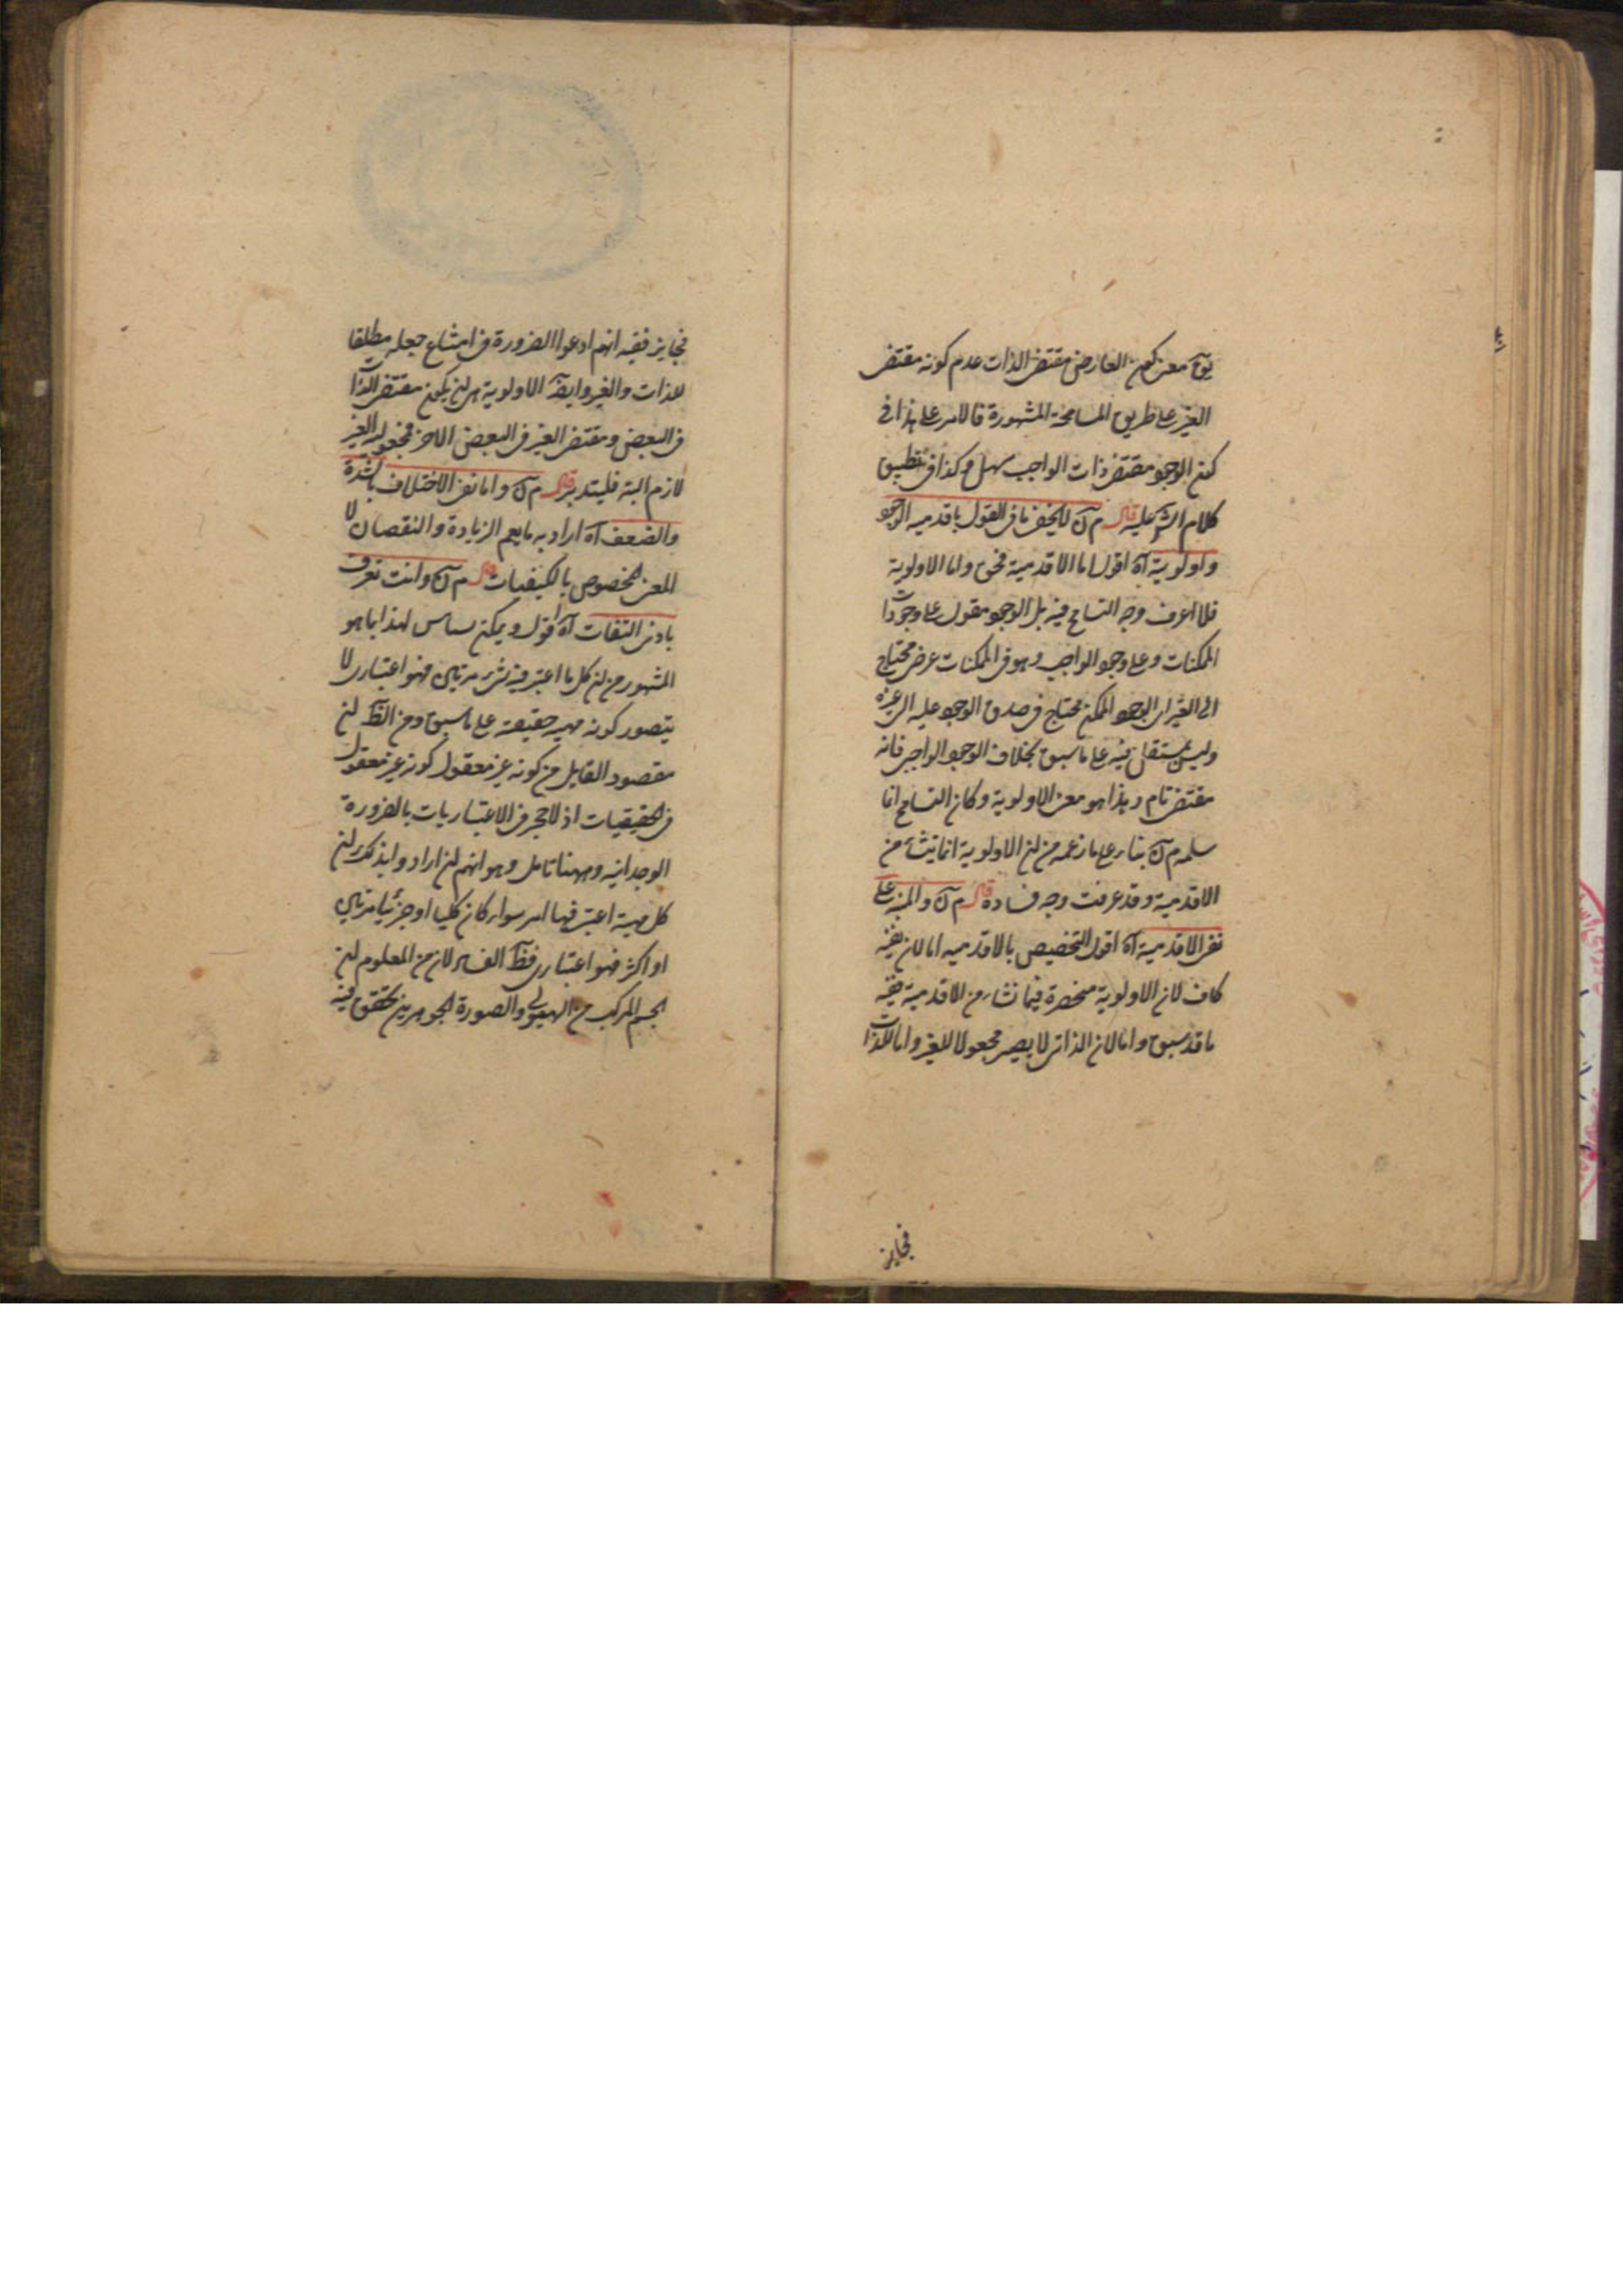 يق معنى كون العارض مقتضى الذات عدم كونه مقتضى
الغير على طريق المسامحة المشهورة فالامر على هذا فى
كون الوجود مقتضى ذات الواجب سهل وكذا فى تطبيق
كلام الش عليه قال م ق لا يخفى ما فى القول باقدمية الوجود
واولوية آه اقول اما الاقدمية فحق واما الاولوية
فلا اعرف وجه التسامح فيه بل الوجود مقول على وجودات
الممكنات وعلى وجود الواجب وهو فى الممكنات عرض محتاج
الى الغير اى الوجود الممكن محتاج فى صدق الوجود عليه الى غيره
وليس بمستقل فيه على ما سبق بخلاف الوجود الواجبى فانه
مقتضى تام وهذا هو معنى الاولوية وكان التسامح انما
سلمه م ق بناء على ما زعمه من ان الاولوية انما ينشأ من
الاقدمية وقد عرفت وجه فساده قال م ق والمبنى على
نفى الاقدمية آه اقول التخصيص بالاقدميه اما لان نفيه
كاف لان الاولوية منحصرة فيما نشاء من الاقدمية ففيه
ما قد سبق واما لان الذاتى لا يصير مجعولا للغير واما للذات
فجايز
فجايز ففيه انهم ادعوا الضرورة فى امتناع جعله مطلقا
للذات والغير وايضا الاولوية هى ان يكون مقتضى الذات
فى البعض ومقتضى الغير فى البعض الاخر فمجعوليه الغير
لازم البتة فليتدبر قال م ق واما نفى الاختلاف بالشدة
والضعف آه اراد به ما يعم الزيادة والنقصان لا
المعنى المخصوص بالكيفيات قال م ق وانت تعرف
بادنى التفات آه اقول ويمكن لهذا بما هو
المشهور من ان كل ما اعتبر فيه شىء مرتين فهو اعتبارى لا
يتصور كونه مهيه حقيقة على ما سبق ومن الظ ان
مقصود القايل من كونه غير معقول كونه غير معقول
فى الحقيقيات اذ لا حجر فى الاعتباريات بالضرورة
الوجدانيه وههنا تامل وهو انهم ان ارادوا بذلك ان
كل مهية اعتبر فيها امر سواء كان كليا او جزئيا مرتين
او اكثر فهو اعتبارى فظ الفساد لان من المعلوم ان
الجسم المركب من الهيولى والصورة الجوهرين تحقق فيه